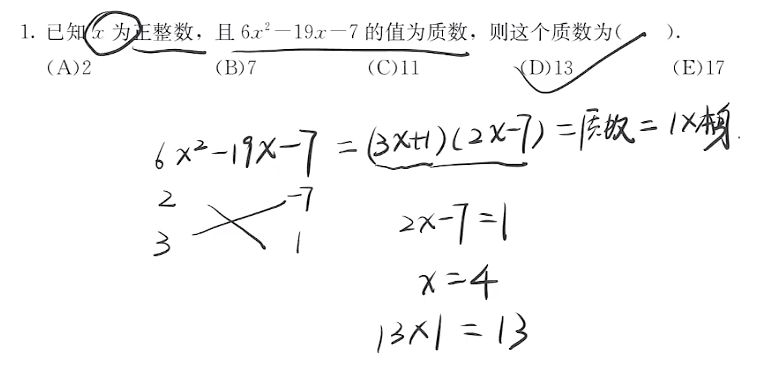 1. 已知 x 为正整数，且 6x²－19x－7 的值为质数，则这个质数为(　　).
(A)2　(B)7　(C)11　(D)13　(E)17
6x²-19x-7 = (3x+1)(2x-7) = 质数 = 1×本身.
2　-7
3　1
2x-7=1
x=4
13×1=13